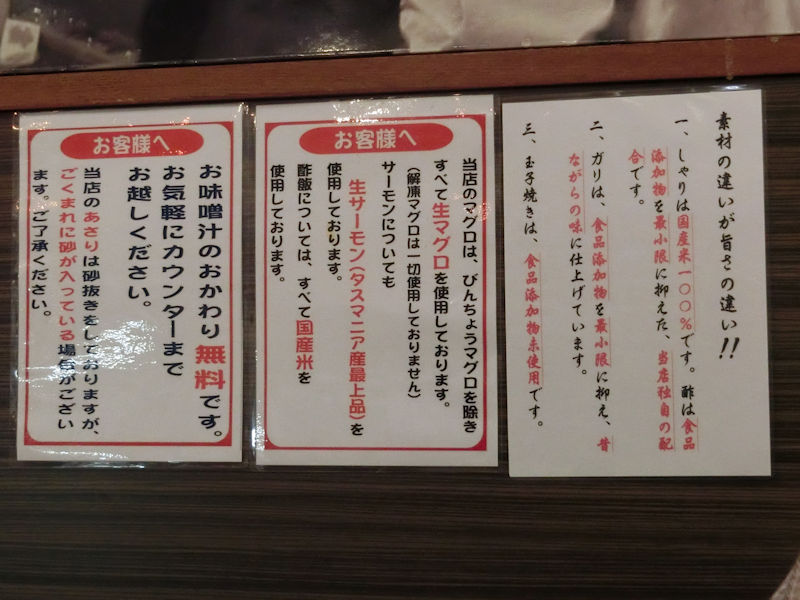 素材の違いが旨さの違い!!
一、しゃりは国産米一〇〇%です。酢は食品
添加物を最小限に抑えた、当店独自の配
合です。
二、ガリは、食品添加物を最小限に抑え、昔
ながらの味に仕上げています。
三、玉子焼きは、食品添加物未使用です。
お客様へ
当店のマグロは、びんちょうマグロを除き
すべて生マグロを使用しております。
(解凍マグロは一切使用しておりません)
サーモンについても
生サーモン(タスマニア産最上品)を
使用しております。
酢飯については、すべて国産米を
使用しております。
お客様へ
お味噌汁のおかわり無料です。
お気軽にカウンターまで
お越しください。
当店のあさりは砂抜きをしておりますが、
ごくまれに砂が入っている場合がござい
ます。ご了承ください。